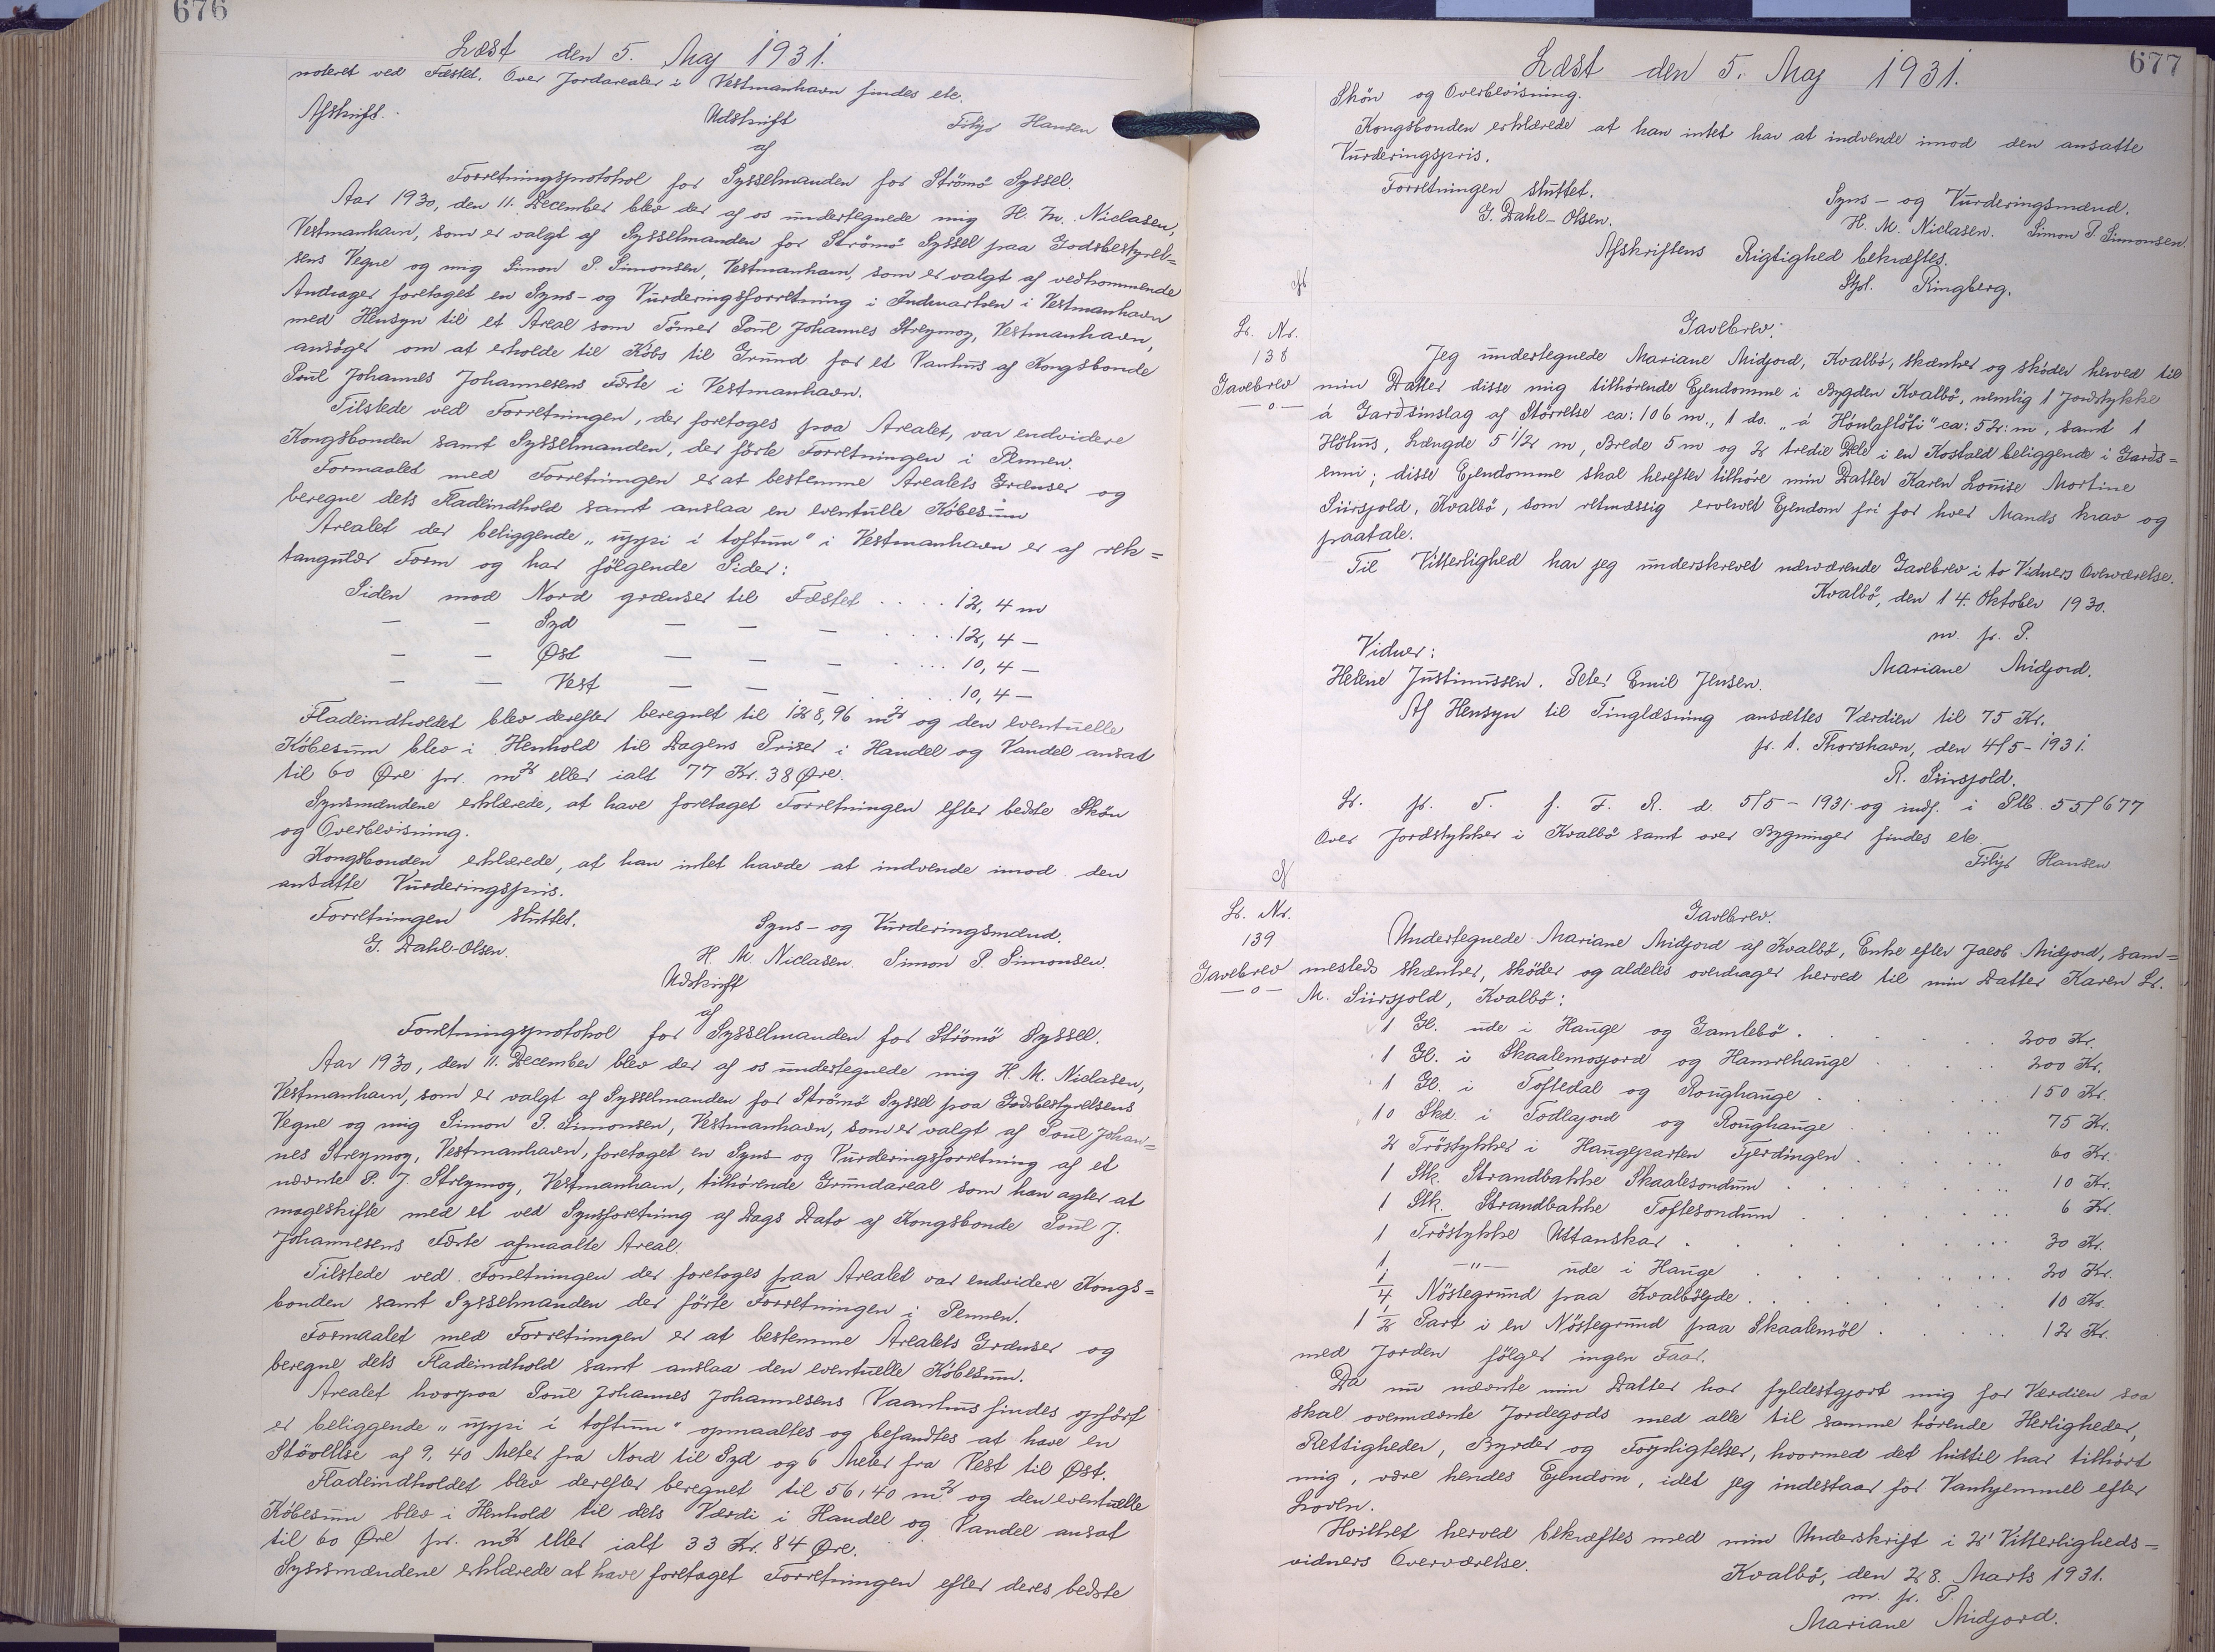 676
Læst den 5. Maj 1931.
noteret ved Fæstet. Over Jordarealer i Vestmanhavn findes etc.
Filijs Hansen
Afskrift.
Udskrift
af
Forretningsprotokol for Sysselmanden for Strömö Syssel.
Aar 1930, den 11. December blev der af os undertegnede mig H. M. Niclasen,
Vestmanhavn, som er valgt af Sysselmanden for Strömö Syssel paa Godsbestyrel=
sens Vegne og mig Simon P. Simonsen, Vestmanhavn, som er valgt af vedkommende
Andrager foretaget en Syns- og Vurderingsforretning i Indmarken i Vestmanhavn
med Hensyn til et Areal som Tömrer Poul Johannes Streymoy, Vestmanhavn,
ansöger om at erholde til Köbs til Grund for et Vanhus af Kongsbonde
Poul Johannes Johannesens Fæste i Vestmanhavn.
Tilstede ved Forretningen, der foretoges paa Arealet, var endvidere
Kongsbonden samt Sysselmanden, der förte Forretningen i Pennen.
Formaalet med Forretningen er at bestemme Arealets Grænser og
beregne dets Fladeindhold samt anslaa en eventuelle Köbesum
Arealet der beliggende „uppi í toftum“ i Vestmanhavn er af rek=
tangulær Form og har fölgende Sider:
Siden mod Nord grænser til Fæstet .... 12,4 m
— — Syd — — — .... 12,4 —
— — Øst — — — .... 10,4 —
— — Vest — — — .. 10,4 —
Fladeindholdet blev derefter beregnet til 128,96 m² og den eventuelle
Köbesum blev i Henhold til Dagens Priser i Handel og Vandel ansat
til 60 Øre pr. m² eller ialt 77 Kr. 38 Øre.
Synsmændene erklærede, at have foretaget Forretningen efter bedste Skön
og Overbevisning.
Kongsbonden erklærede, at han intet havde at indvende imod den
ansatte Vurderingspris.
Forretningen sluttet.
Syns- og Vurderingsmænd.
G. Dahl-Olsen.
H. M. Niclasen. Simon P. Simonsen.
Udskrift
af
Forretningsprotokol for Sysselmanden for Strömö Syssel.
Aar 1930, den 11. December blev der af os undertegnede mig H. M. Niclasen,
Vestmanhavn, som er valgt af Sysselmanden for Strömö Syssel paa Godsbestyrelsens
Vegne og mig Simon P. Simonsen, Vestmanhavn, som er valgt af Poul Johan=
nes Streymoy, Vestmanhavn, foretaget en Syns- og Vurderingsforretning af et
nævnte P. J. Streymoy, Vestmanhavn, tilhörende Grundareal som han agter at
mageskifte med et ved Synsforetning af Dags Dato af Kongsbonde Poul J.
Johannesens Fæste afmaalte Areal.
Tilstede ved Forretningen der foretoges paa Arealet var endvidere Kongs=
bonden samt Sysselmanden der förte Forretningen i Pennen.
Formaalet med Forretningen er at bestemme Arealets Grænser og
beregne dets Fladeindhold samt anslaa den eventuelle Köbesum.
Arealet hvorpaa Poul Johannes Johannesens Vaanhus findes opfört
er beliggende „uppi í toftum“ opmaaltes og befandtes at have en
Störrelse af 9,40 Meter fra Nord til Syd og 6 Meter fra Vest til Øst.
Fladeindholdet blev derefter beregnet til 56,40 m² og den eventuelle
Köbesum blev i Henhold til dets Værdi i Handel og Vandel ansat
til 60 Øre pr. m² eller ialt 33 Kr. 84 Øre.
Synsmændene erklærede at have foretaget Forretningen efter deres bedste
677
Læst den 5. Maj 1931.
Skön og Overbevisning.
Kongsbonden erklærede at han intet har at indvende imod den ansatte
Vurderingspris.
Forretningen sluttet.
Syns- og Vurderingsmænd.
G. Dahl-Olsen.
H. M. Niclasen. Simon P. Simonsen.
Afskriftens Rigtighed bekræftes.
Ringberg.
Gavebrev:
Lr. Nr.
138
Gavebrev
—o—
Jeg undertegnede Mariane Midjord, Kvalbö, skænker og sköder herved til
min Datter disse mig tilhörende Ejendomme i Bygden Kvalbö, nemlig 1 Jordstykke
á Garðsinslag af Störrelse ca: 106 m., 1 do. „á Höulafløti“ ca: 52 m, samt 1
Höhus, Længde 5 1/2 m, Brede 5 m og 2 tredie Dele i en Kostald beliggende i Garðs=
enni; disse Ejendomme skal herefter tilhöre min Datter Karen Louise Mortine
Siirsjold, Kvalbö, som retmæssig erhvervet Ejendom fri for hver Mands krav og
paatale.
Til Vitterlighed har jeg underskrevet nærværende Gavebrev i to Vidners Overværelse.
Kvalbö, den 14. Oktober 1930.
m. p. P.
Vidner:
Mariane Midjord.
Helene Justinussen. Peter Emil Jensen.
Af Hensyn til Tinglæsning ansættes Værdien til 75 Kr.
p. t. Thorshavn, den 4/5-1931.
R. Siirsjold.
Lr. p. T. f. F. R. d. 5/5-1931 og indf. i Plb. 55/677
Over Jordstykker i Kvalbö samt over Bygninger findes etc
Filijs Hansen
Gavebrev.
Lr. Nr.
139
Gavebrev
—o—
Undertegnede Mariane Midjord af Kvalbö, Enke efter Jacob Midjord, sam=
mesteds skænker, sköder og aldeles overdrager herved til min Datter Karen L.
M. Siirsjold, Kvalbö:
1 Gl. ude i Hauge og Gamlebö . . . . . 200 Kr.
1 Gl. i Skaalemosjord og Hamrehauge . . . . 200 Kr.
1 Gl. i Toftedal og Roughauge . . . . 150 Kr.
10 Skd. i Todlajord og Roughauge . . . . 75 Kr.
2 Tröstykker i Haugeparten Fjerdingen . . . . 60 Kr.
1 Stk. Strandbakke Skaalesondum . . . . 10 Kr.
1 Stk. Strandbakke Toftesondum . . . . 6 Kr.
1 Tröstykke Uttanskar . . . . 30 Kr.
1 —"— ude i Hauge . . . . 20 Kr.
1/4 Nöstegrund paa Kvalböejde . . . . 10 Kr.
1 1/2 Part i en Nöstegrund paa Skaalemöl . . . . 12 Kr.
med Jorden fölger ingen Faar.
Da nu nævnte min Datter har fyldestgjort mig for Værdien saa
skal ovennævnte Jordegods med alle til samme hörende Herligheder,
Rettigheder, Byrder og Forpligtelser, hvormed det hidtil har tilhört
mig, være hendes Ejendom, idet jeg indestaar for Vanhjemmel efter
Loven.
Hvilket herved bekræftes med min Underskrift i 2 Vitterligheds=
vidners Overværelse.
Kvalbö, den 28. Marts 1931.
m. p. P.
Mariane Midjord.